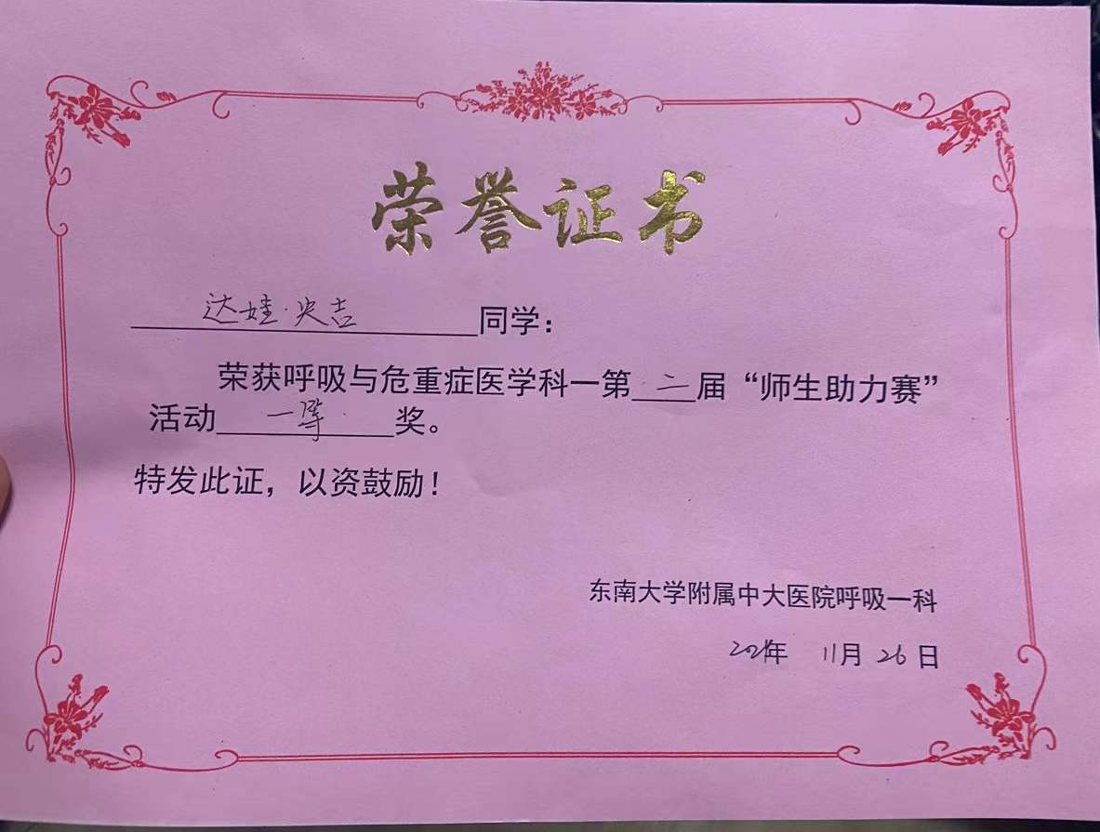 荣誉证书
达娃·央吉同学：
荣获呼吸与危重症医学科一第二届“师生助力赛”
活动一等奖。
特发此证，以资鼓励！
东南大学附属中大医院呼吸一科
年 11月 26日